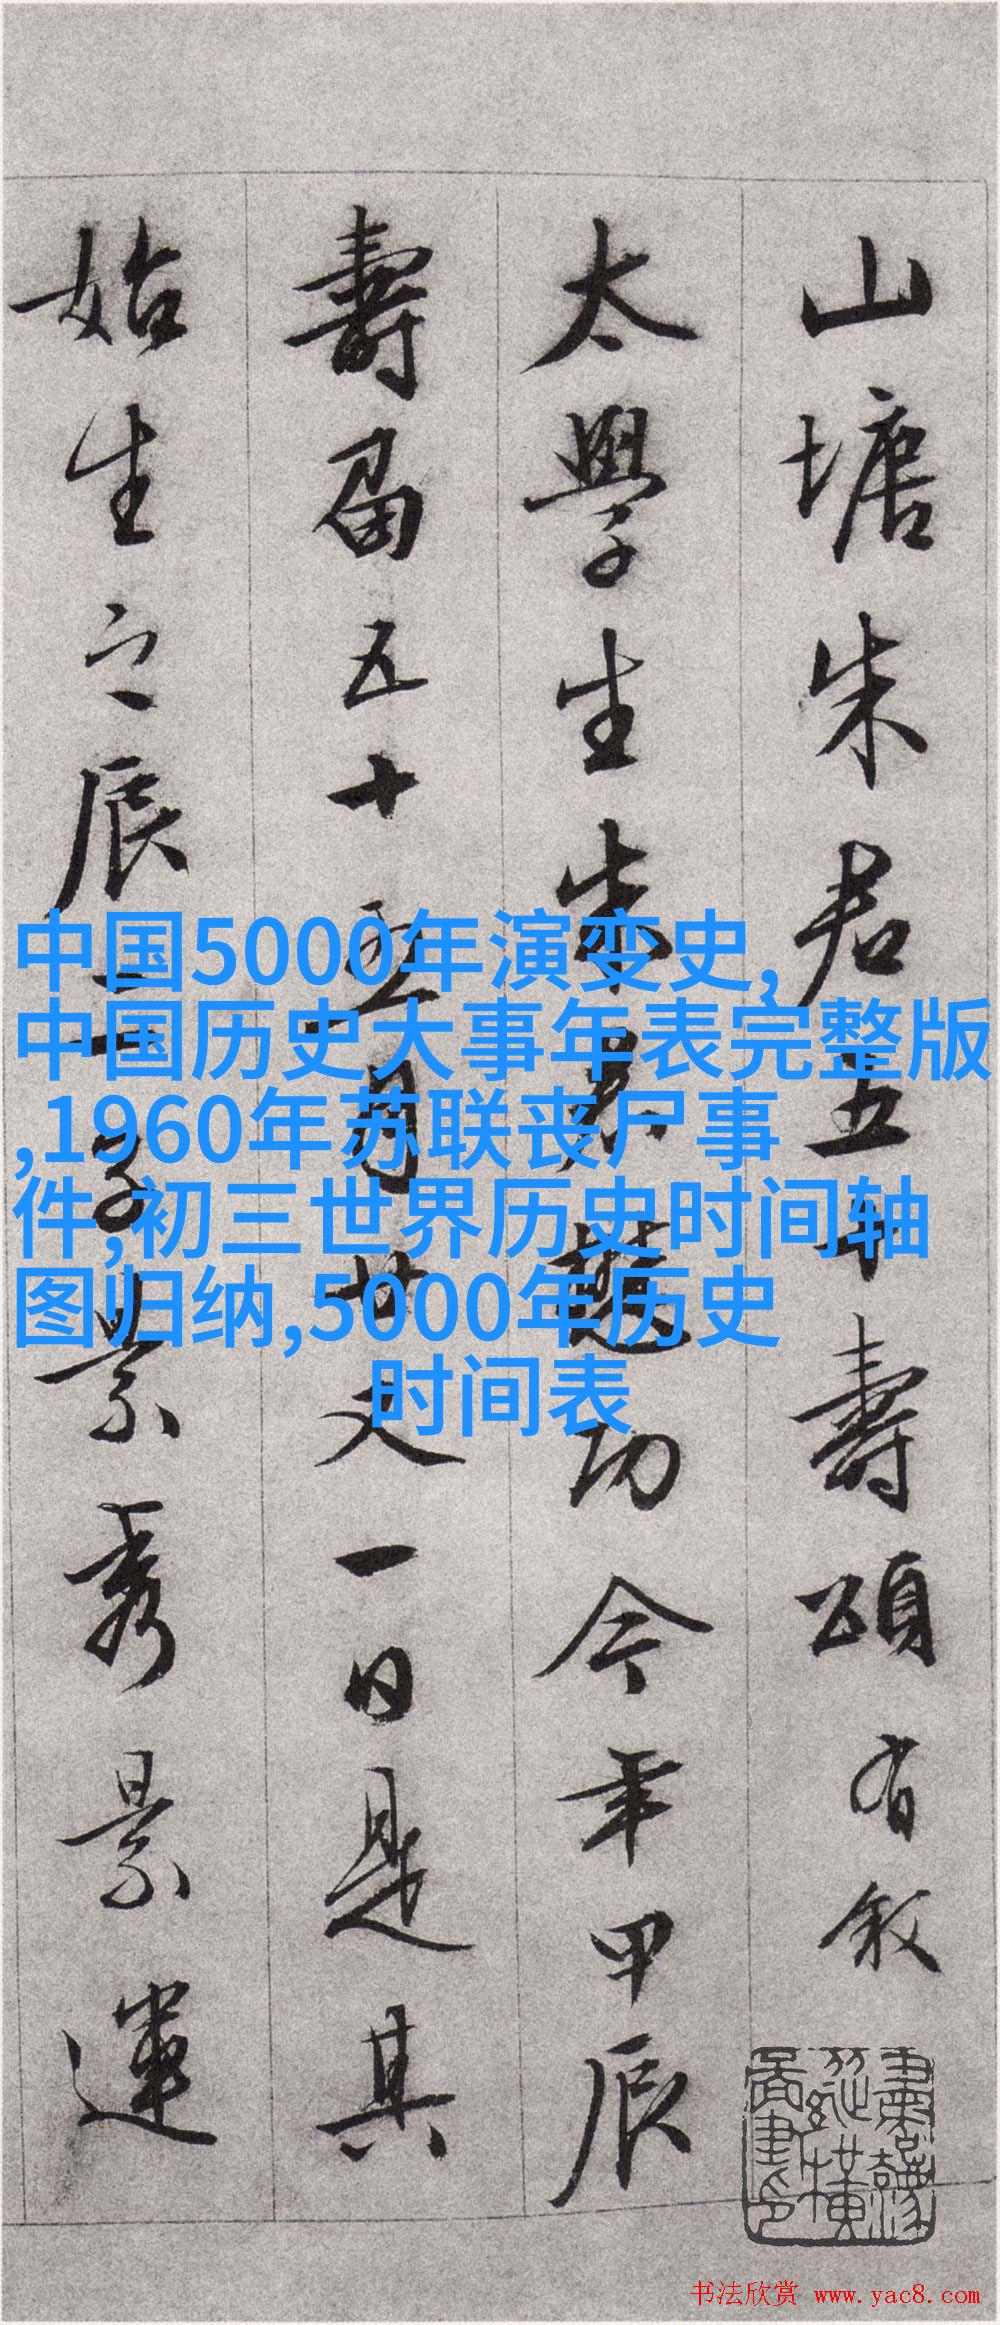 山塘朱君五十壽頌有敘
太學生朱君懋功今年甲辰
壽屆五十五月廿又一日是其
始生之辰二子景秀景運
中国5000年演变史,
中国历史大事年表完整版
,1960年苏联丧尸事
件,初三世界历史时间轴
图归纳,5000年历史
时间表
书法欣赏 www.yac8.com